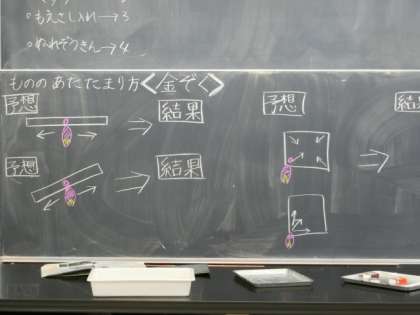 ○もえさし入れ→3
○ぬれぞうきん→4
もののあたたまり方〈金ぞく〉
予想 結果 予想 結
予想 結果